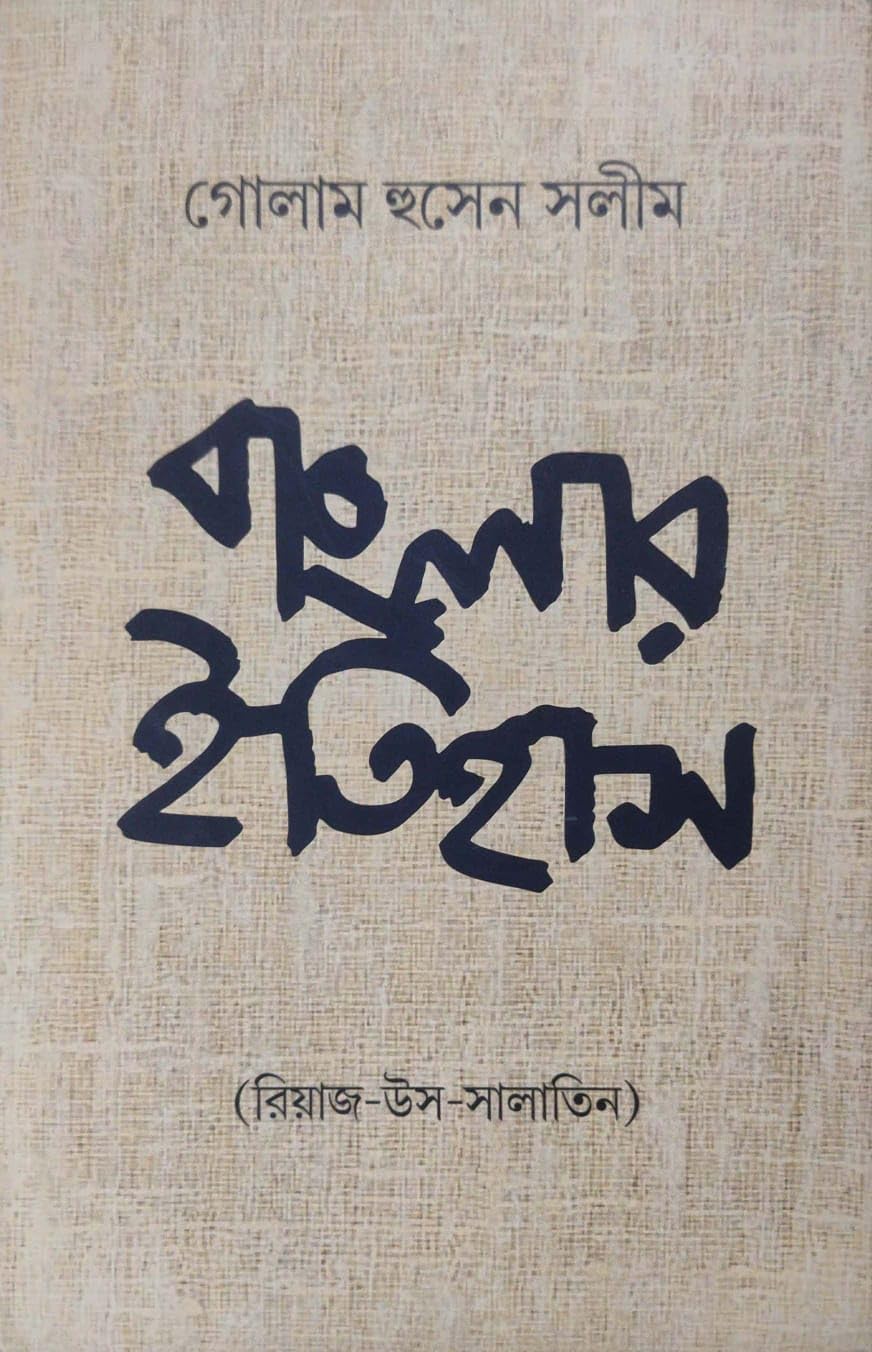 গোলাম হুসেন সলীম
বাংলার
ইতিহাস
(রিয়াজ-উস-সালাতিন)